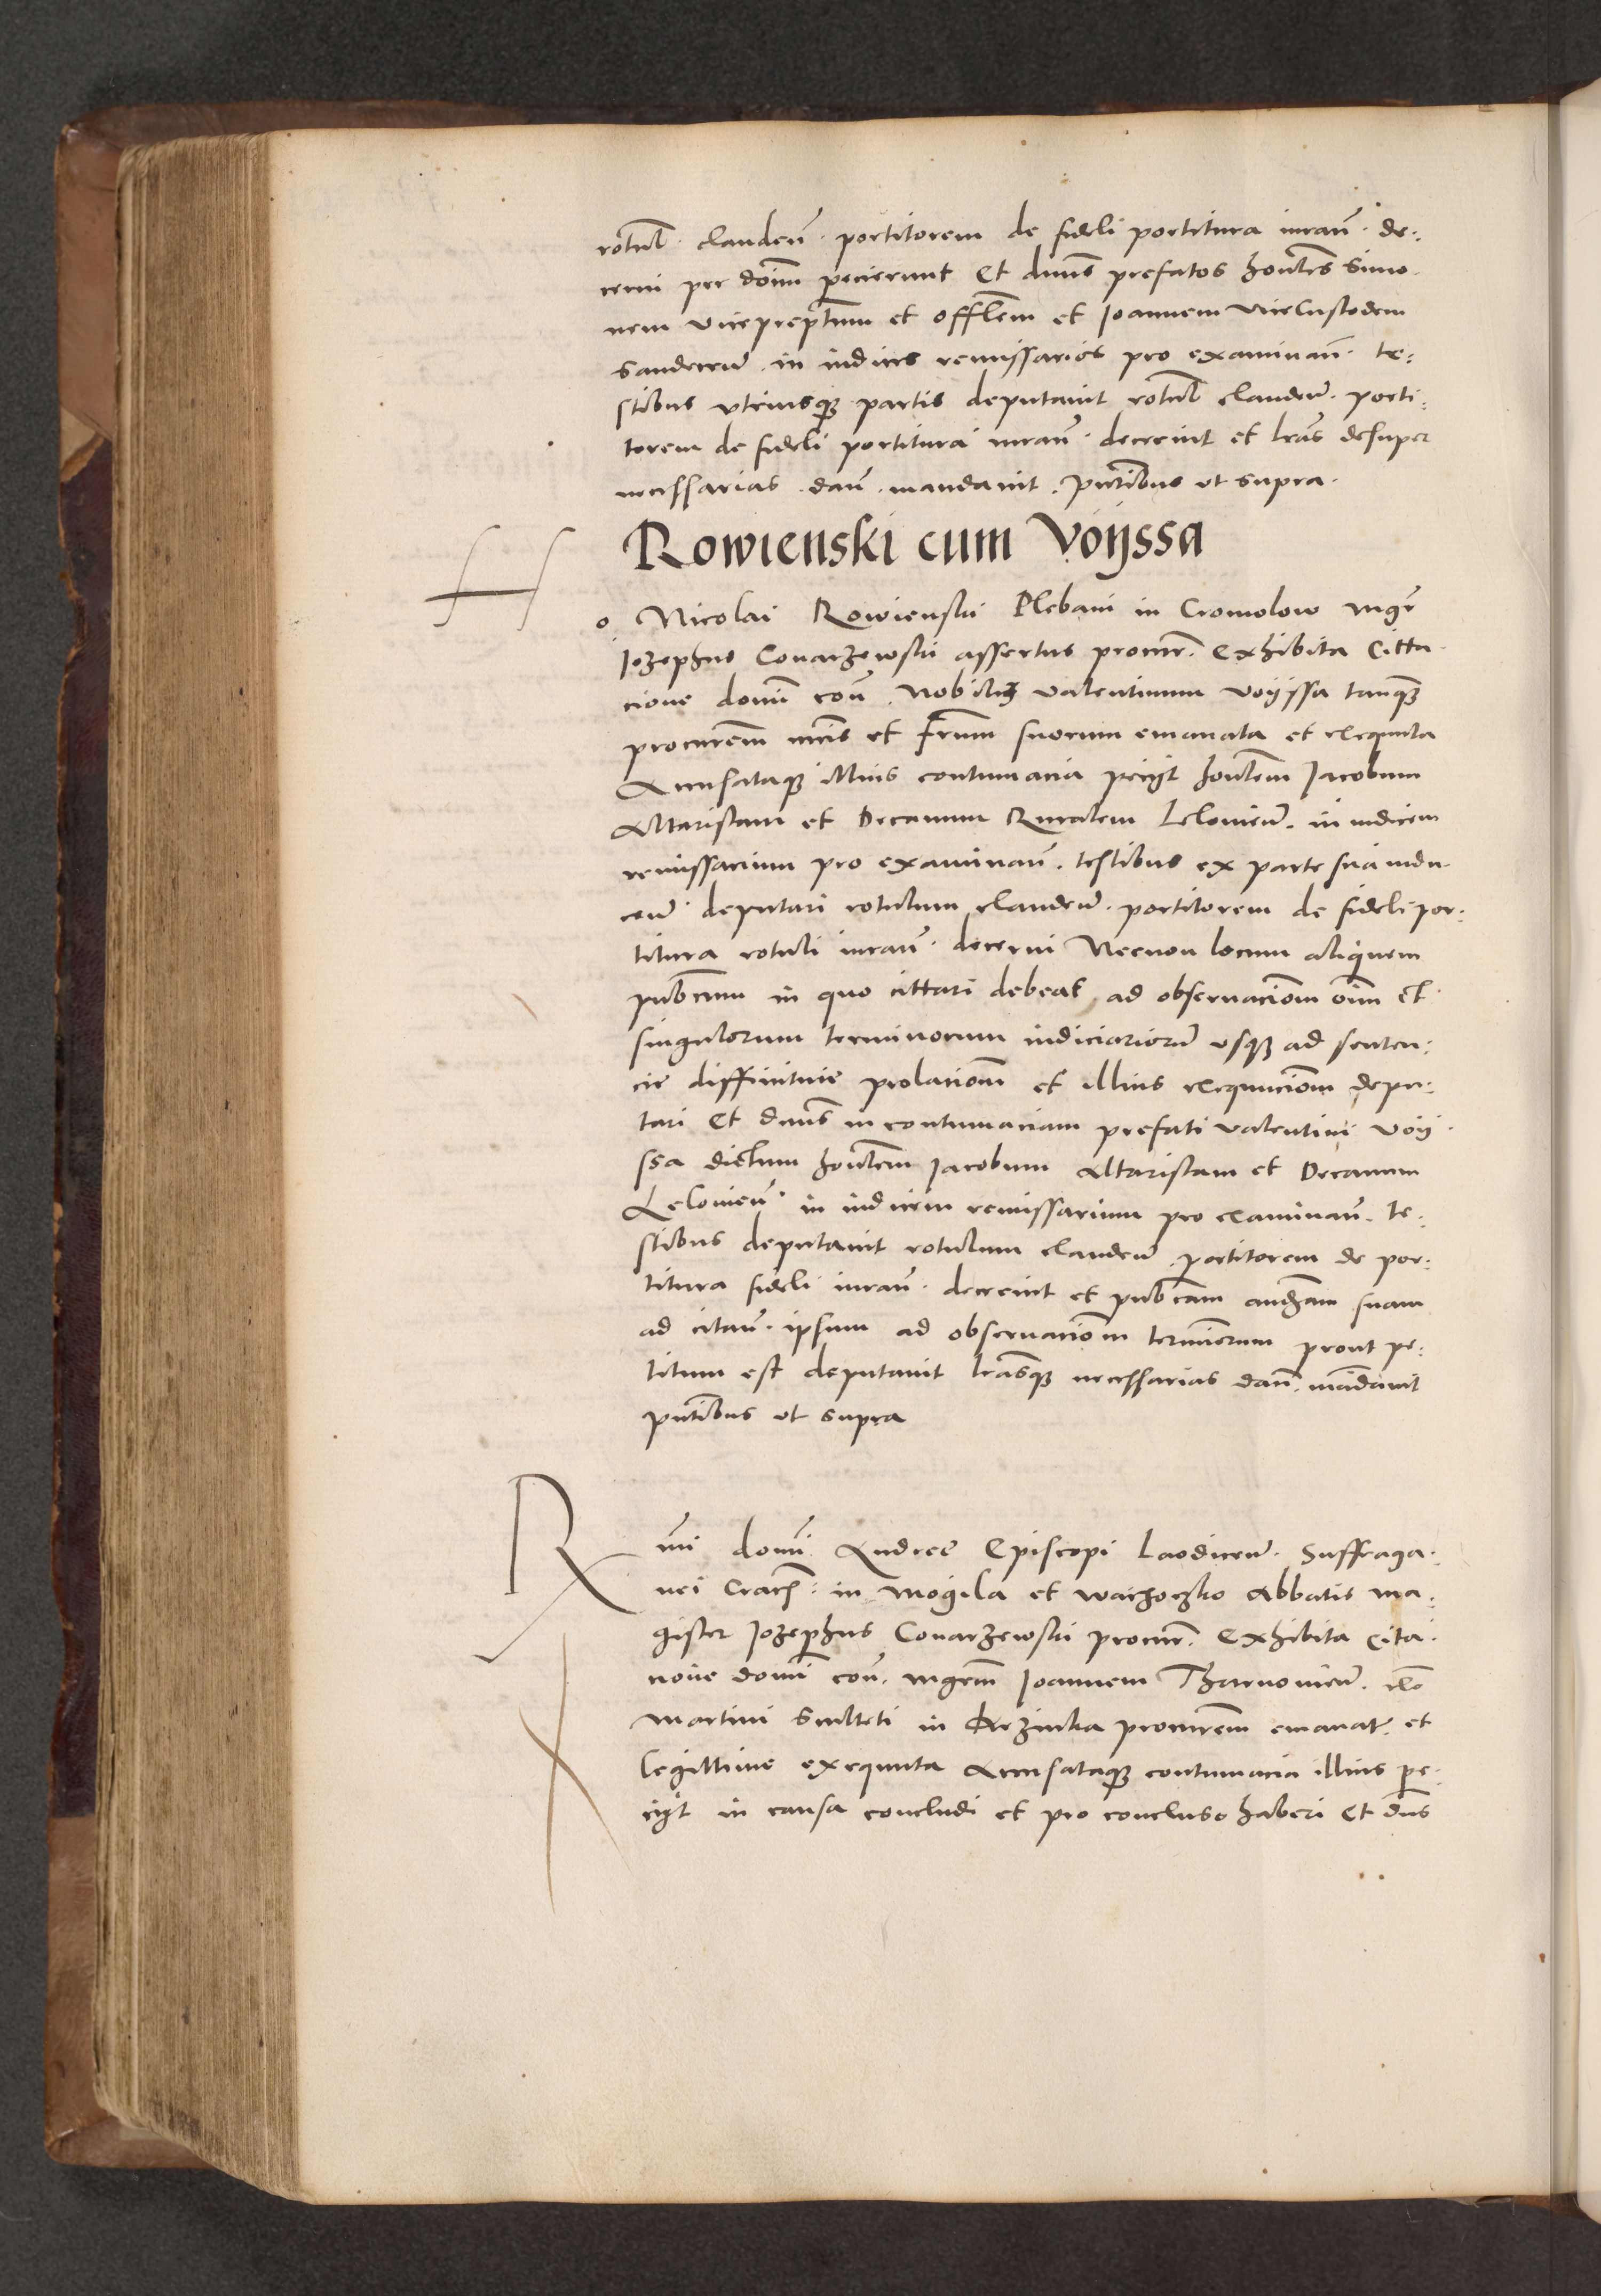 rotul. clauden. portitorem de fideli portitura iuran. de:
cerni per dominum pecierunt Et dominus prefatos honbles Simo
nem vicepreptum et offlem et Joannem viceCustodem
Sandecen. in iudices remissarios pro examinan. te:
stibus vtriusque partis deputauit rotul clauden. porti:
torem de fideli portitura iuran. decreuit et lras desuper
necessarias dan. mandauit. pntibus vt supra.
Rowienski cum Voÿssa
o Nicolai Rowienski Plebani in Cromolow mgr
Jozephus Conarzewski assertus procur. Exhibita Citta
cione domini con. Nobilem valentinum voÿssa tanque
procurem mris et frum suorum emanata et exequuta
Accusataque illius contumacia peciÿt honblem Jacobum
Altaristam et Decanum Ruralem Lelouien. in iudicem
remissarium pro examinan. testibus ex parte sua indu
cen. deputari rotulum clauden. portitorem de fideli por:
titura rotuli iuran. decerni Necnon locum aliquem
publicum in quo cittari debeat ad obseruaciom oim et
singulorum terminorum iudiciariorum vsque ad senten:
cie diffinitiue prolaciom et illius exequuciom depu:
tari Et dnus in contumaciam prefati valentini voÿ
ssa dictum honblem Jacobum Altaristam et Decanum
Lelouien. in iudicem remissarium pro examinan. te:
stibus deputauit rotulum clauden. portitorem de por:
titura fideli iuran. decreuit et publicam audiam suam
ad citan. ipsum ad obseruaciom terminorum prout pe:
titum est deputauit lrasque necessarias dan. mandauit
pntibus vt supra
R mi domini Andree Episcopi Laodicen. Suffraga:
nei Crac. in Mogila et wachoczko Abbatis ma:
gister Jozephus Conarzewski procur. Exhibita Cita
cione domini con. mgrem Joannem Tharnouien.
martini Sculteti in procurem emanat. et
legittime exequuta Accusataque contumacia illius pe:
ciÿt in causa concludi et pro concluso haberi Et dnus